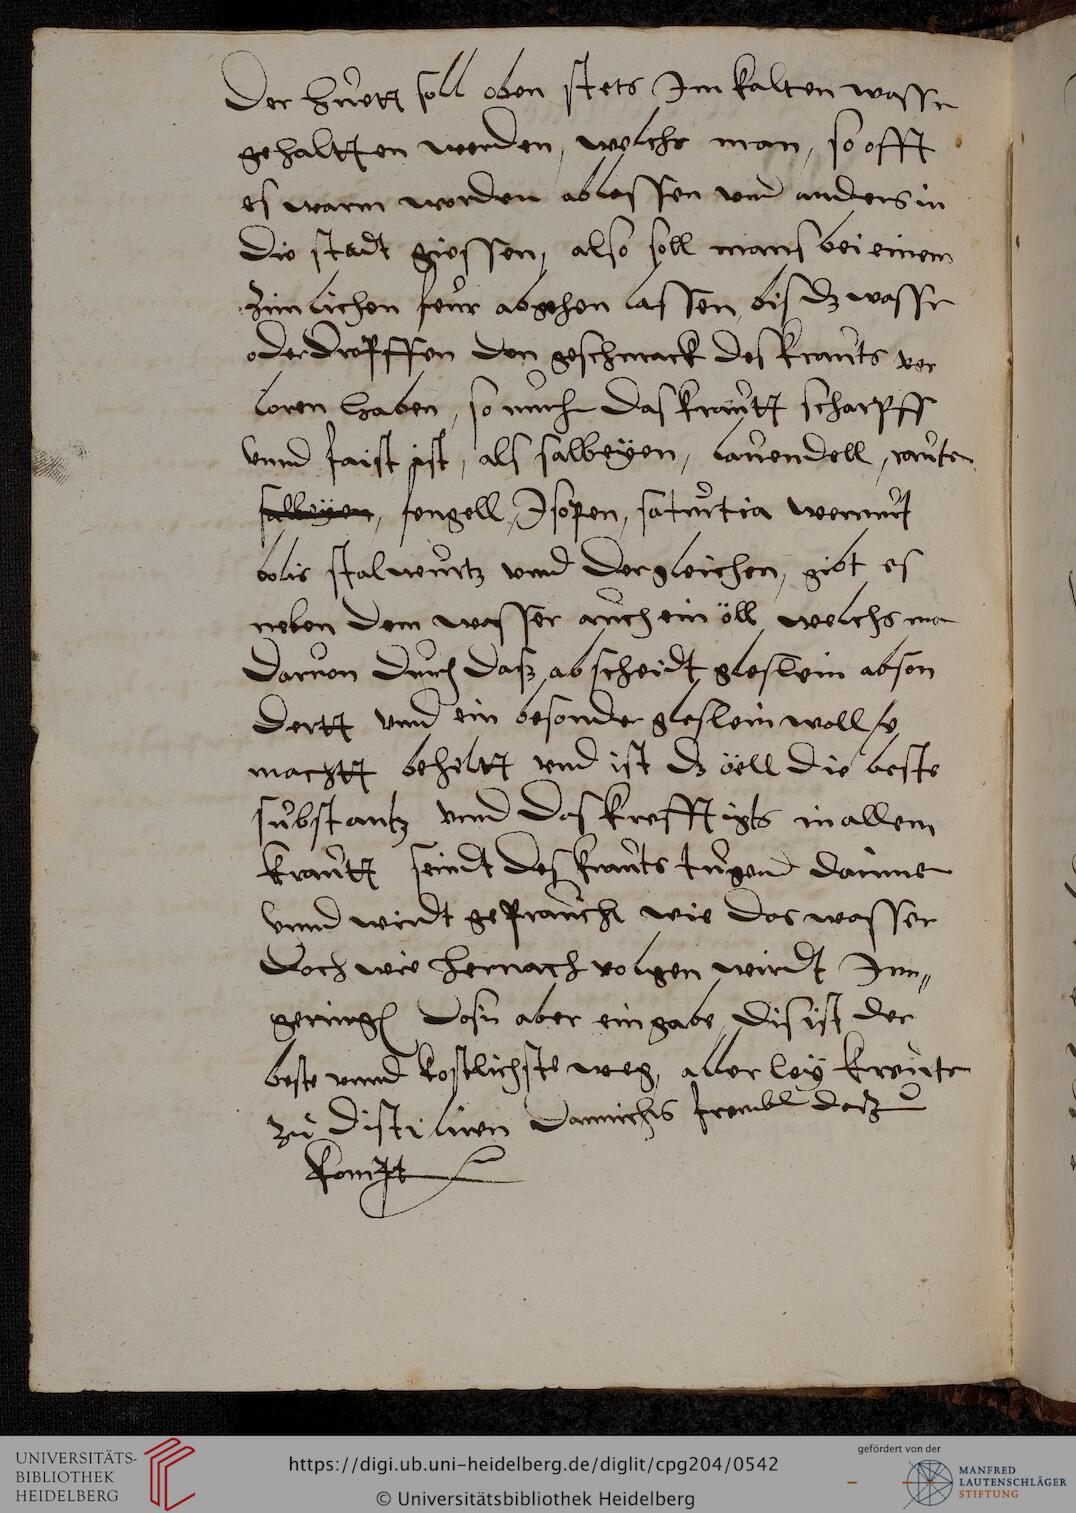 Der huett soll oben stets Im kalten wasser
gehaltten werden, welchs man, so offt
es warm worden ablassen vnd anders in
die stadt giessen, also soll mans bei einem
zimlichen feur abgehen lassen, bis dz wasser
oder dropffen den geschmack des krauts ver
loren haben, so nuhn das krautt scharpff
vnnd faist ist, als salbeyen, lauendell, rauten
salbeyen, fengell, Isopen, saturtia wermut
bolis stalwurtz vnnd dergleichen, gibt es
neben dem wasser auch ein öll welchs man
daruon durch das abscheidt gleslein abson
dertt vnnd ein besonder gleslein woll ver
machtt beheltt vnd ist dz öell die beste
substantz vnnd das krefftigts in allem
krautt seindt des krauts tugend darinne
vnnd wirdt gepraucht wie das wasser
doch wie hernach volgen wirdt Inn
geringer dosi aber eingabe, dis ist der
beste vnnd kostlichste weg, allerley kreuter
zu distiliren damichts frembd darzu
kompt
UNIVERSITÄTS-
BIBLIOTHEK
HEIDELBERG
https://digi.ub.uni-heidelberg.de/diglit/cpg204/0542
© Universitätsbibliothek Heidelberg
gefördert von der
MANFRED
LAUTENSCHLÄGER
STIFTUNG